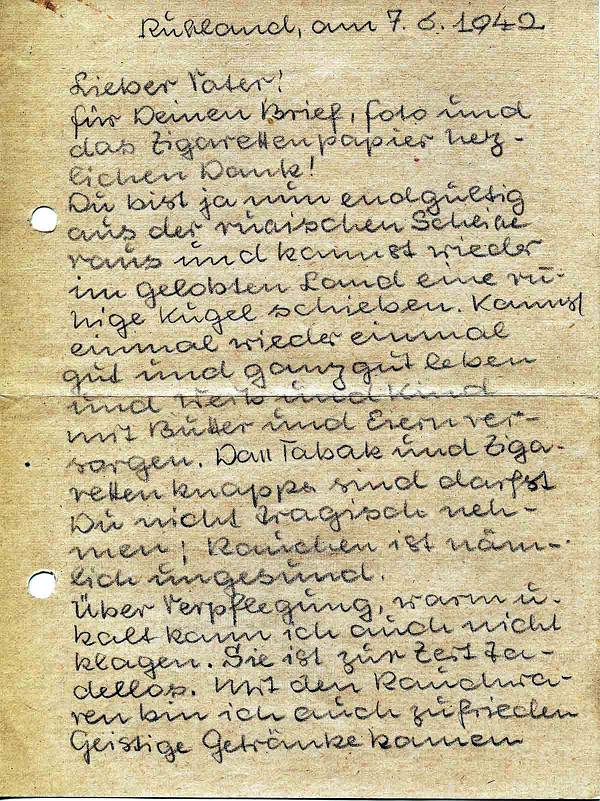 Rußland, am 7. 6. 1942
Lieber Vater!
für Deinen Brief, Foto und
das Zigarettenpapier herz-
lichen Dank!
Du bist ja nun endgültig
aus der rusischen Scheiße
raus und kannst wieder
im gelobten Land eine ru-
hige Kugel schieben. Kannst
einmal wieder einmal
gut und ganz gut leben
und Weib und Kind
mit Butter und Eiern ver-
sorgen. Daß Tabak und Ziga-
retten knapp sind darfst
Du nicht tragisch neh-
men; Rauchen ist näm-
lich ungesund.
Über Verpflegung, warm u.
kalt kann ich auch nicht
klagen. Sie ist zur Zeit Ta-
dellos. Mit den Rauchwa-
ren bin ich auch zufrieden
Geistige Getränke kamen